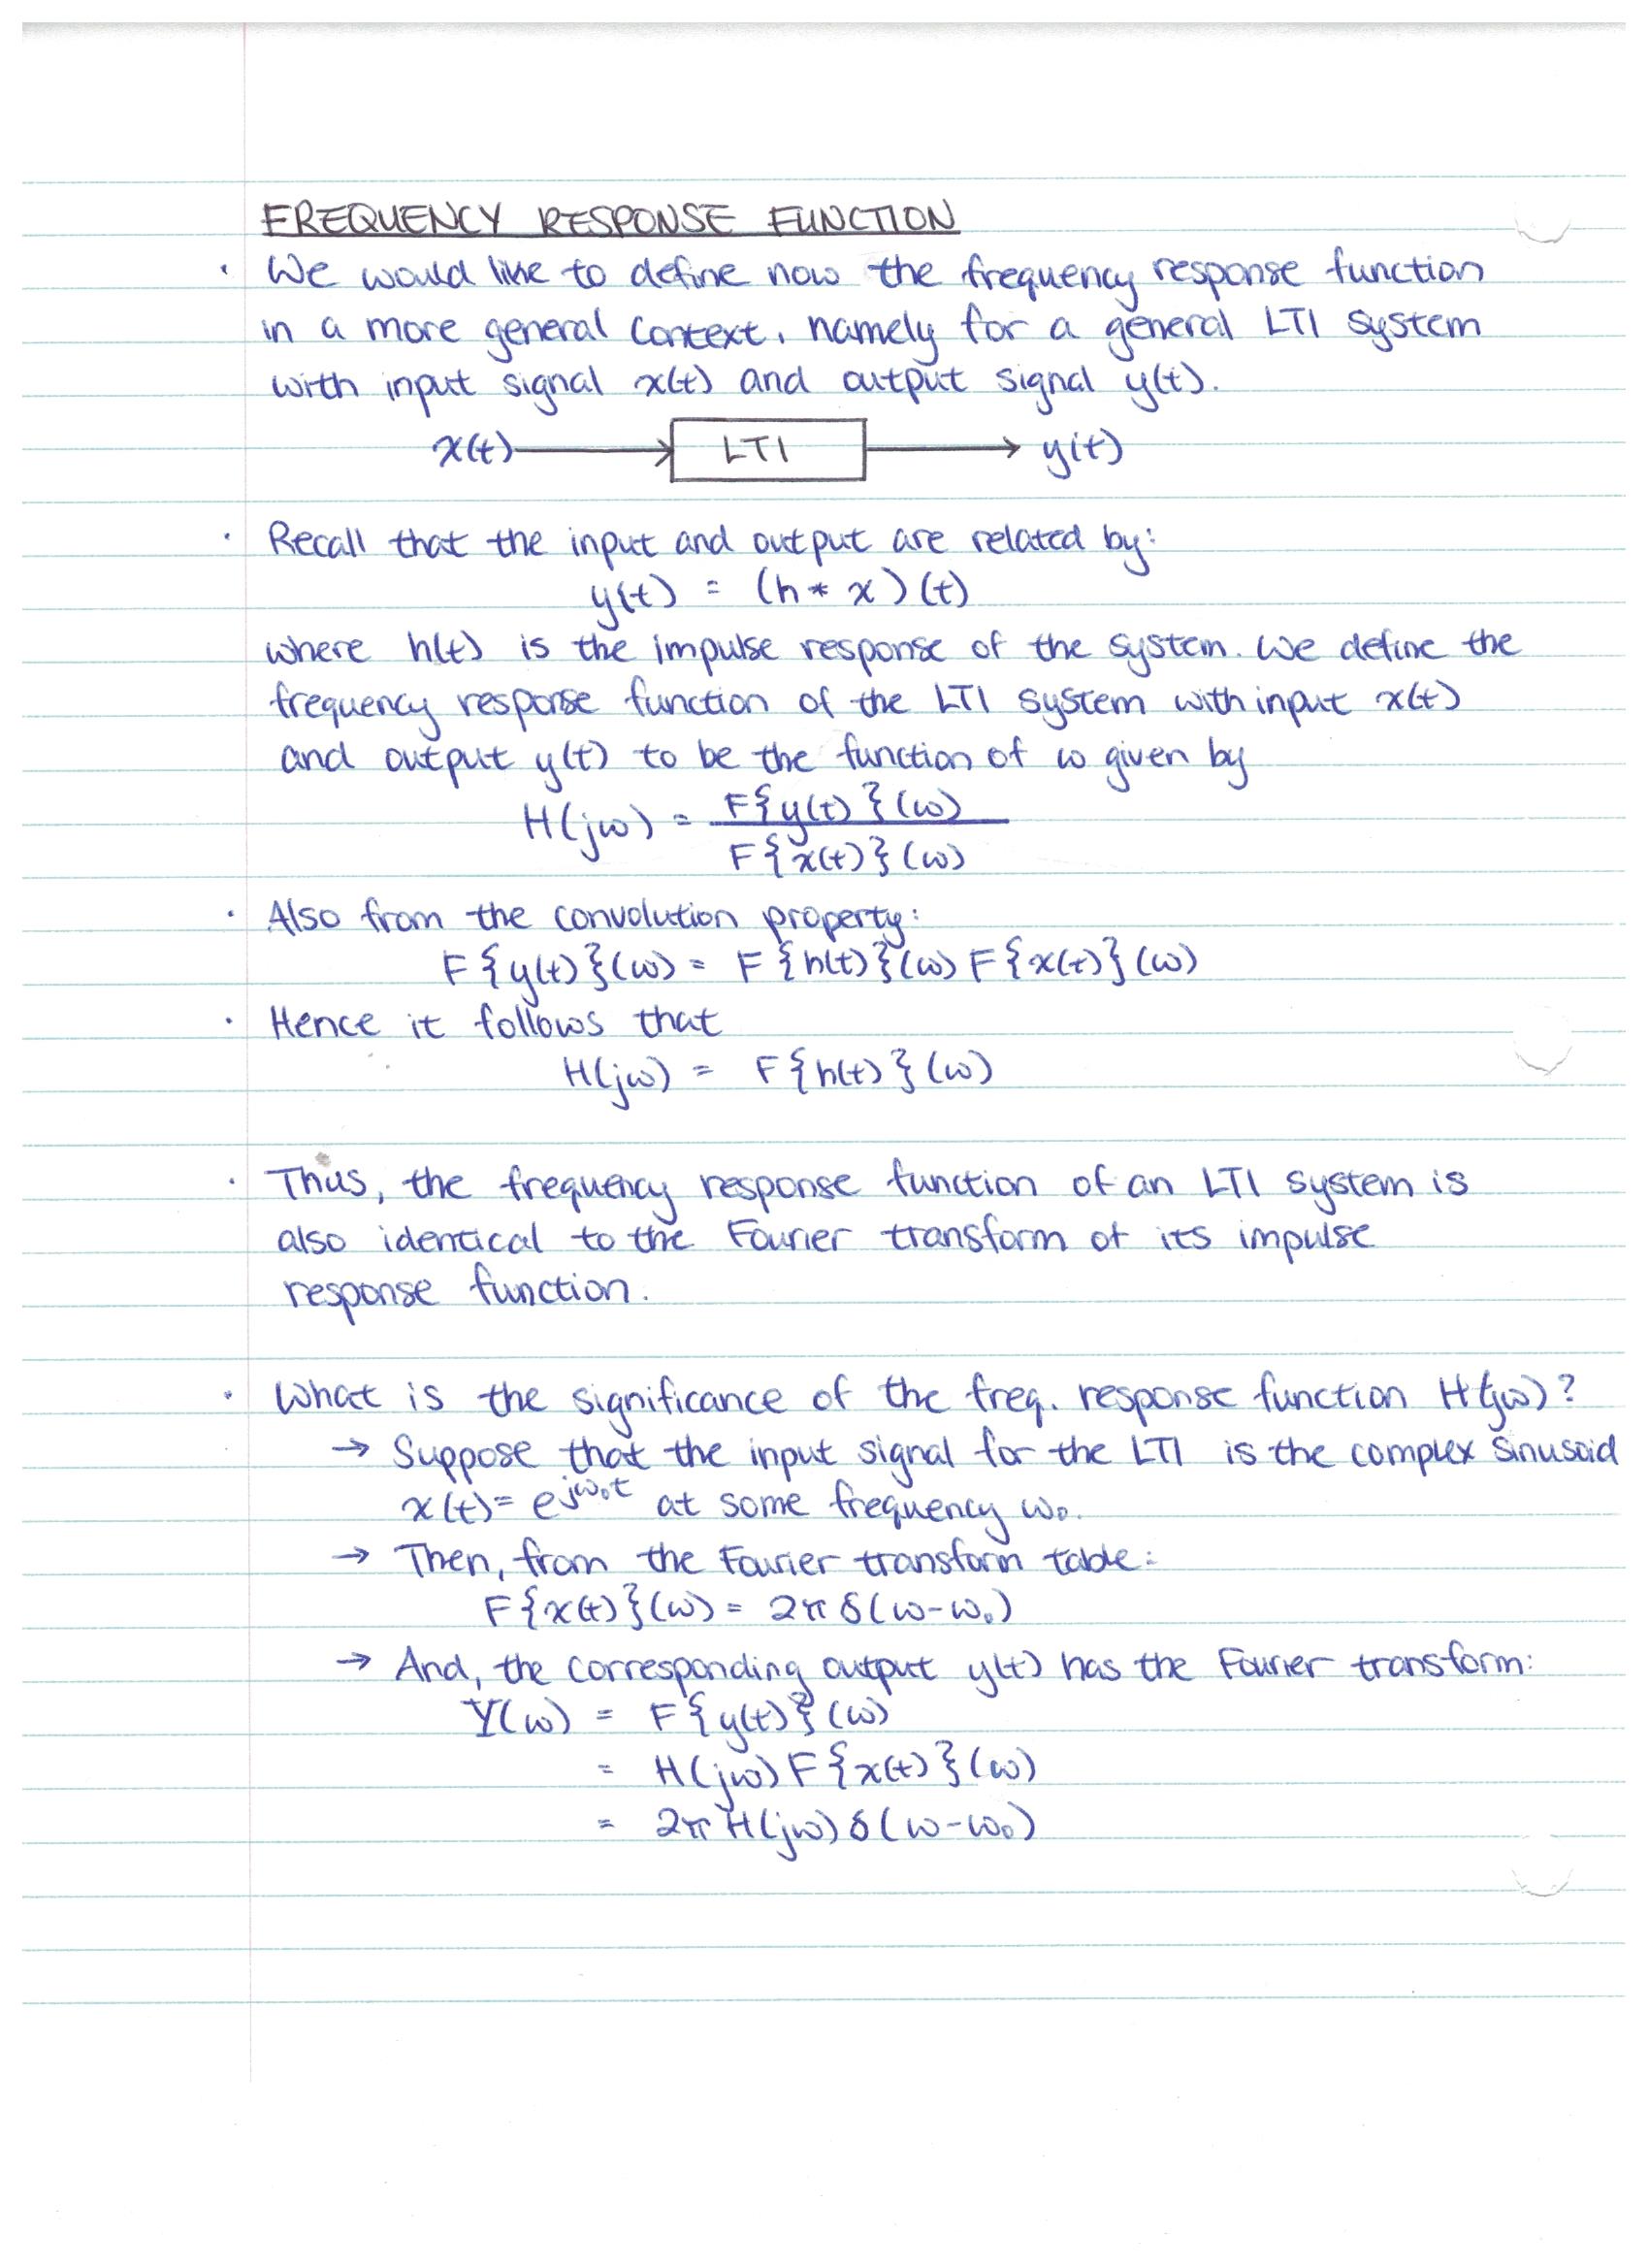 FREQUENCY RESPONSE FUNCTION
· We would like to define now the frequency response function
in a more general context, namely for a general LTI system
with input signal x(t) and output signal y(t).
x(t) → LTI → y(t)
· Recall that the input and output are related by:
y(t) = (h * x)(t)
where h(t) is the impulse response of the system. We define the
frequency response function of the LTI system with input x(t)
and output y(t) to be the function of ω given by
H(jω) = F{y(t)}(ω)
F{x(t)}(ω)
· Also from the convolution property:
F{y(t)}(ω) = F{h(t)}(ω) F{x(t)}(ω)
· Hence it follows that
H(jω) = F{h(t)}(ω)
· Thus, the frequency response function of an LTI system is
also identical to the Fourier transform of its impulse
response function.
· What is the significance of the freq. response function H(jω)?
→ Suppose that the input signal for the LTI is the complex sinusoid
x(t) = e^{jω₀t} at some frequency ω₀.
→ Then, from the Fourier transform table:
F{x(t)}(ω) = 2π δ(ω-ω₀)
→ And, the corresponding output y(t) has the Fourier transform:
Y(ω) = F{y(t)}(ω)
= H(jω) F{x(t)}(ω)
= 2π H(jω) δ(ω-ω₀)